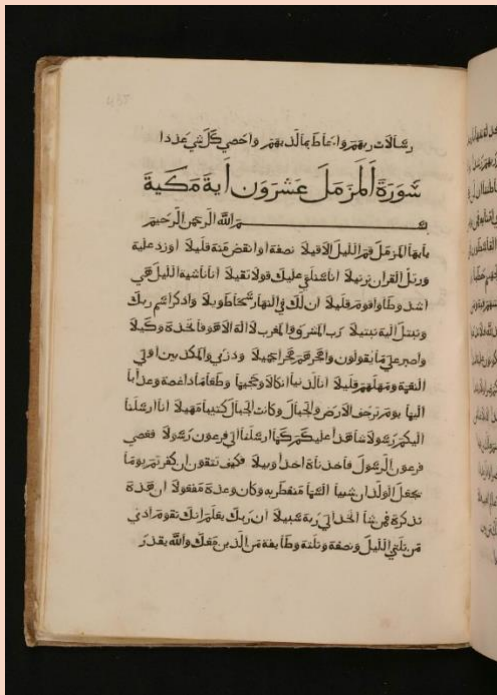 437
رسالات ربهم واحاط بما لديهم واحصي كل شي عددا
سورة المزمل عشرون اية مكية
بسم الله الرحمن الرحيم
يايها المزمل قم الليل الا قليلا نصفه او انقص منه قليلا او زد عليه
ورتل القران ترتيلا انا سنلقي عليك قولا ثقيلا ان ناشية الليل هي
اشد وطا واقوم قيلا ان لك في النهار سبحا طويلا واذكر اسم ربك
وتبتل اليه تبتيلا رب المشرق والمغرب لا اله الا هو فاتخذه وكيلا
واصبر علي ما يقولون واهجرهم هجرا جميلا وذرني والمكذبين اولي
النعمة ومهلهم قليلا ان لدينا انكالا وجحيما وطعاما ذا غصة وعذابا
اليما يوم ترجف الارض والجبال وكانت الجبال كثيبا مهيلا انا ارسلنا
اليكم رسولا شاهدا عليكم كما ارسلنا الي فرعون رسولا فعصي
فرعون الرسول فاخذناه اخذا وبيلا فكيف تتقون ان كفرتم يوما
يجعل الولدان شيبا السما منفطر به وكان وعده مفعولا ان هذه
تذكرة فمن شا اتخذ الي ربه سبيلا ان ربك يعلم انك تقوم ادني
من ثلثي الليل ونصفه وثلثه وطايفة من الذين معك والله يقدر